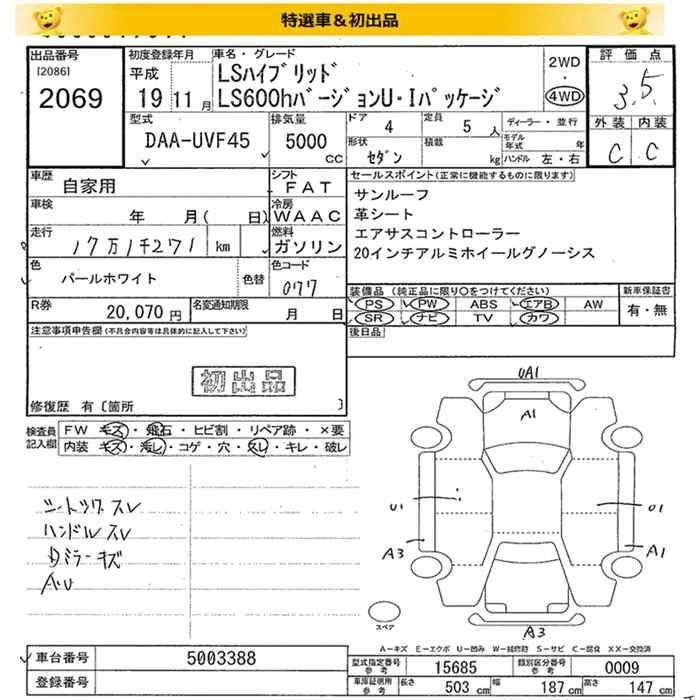 特選車＆初出品
出品番号
[2086]
2069
初度登録年月
平成
19 11 月
車名・グレード
LSハイブリッド
LS600hバージョンU・Iパッケージ
2WD
・
4WD
評価点
3.5
外装 内装
C C
型式
DAA-UVF45
排気量
5000
cc
ドア 4
定員 5 人
ディーラー・並行
形状
セダン
積載
kg
モデル年式 年
ハンドル 左・右
車歴
自家用
シフト
FAT
車検
年 月( 日)
冷房
WAAC
走行
17万1千271 km
燃料
ガソリン
色
パールホワイト
色替
色コード
077
R券
20,070 円
名変通知期限
月 日
セールスポイント(正常に機能するものに限ります)
サンルーフ
革シート
エアサスコントローラー
20インチアルミホイールグノーシス
装備品 (純正品に限り○をつけてください)
新車保証書
PS PW ABS エアB AW
SR ナビ TV カワ
有・無
後日品
注意事項申告欄(不具合内容等は具体的に記入して下さい)
初出品
修復歴 有〔箇所 〕
検査員記入欄
FW キズ・飛石・ヒビ割・リペア跡・×要
内装 キズ・汚し・コゲ・穴・スレ・キレ・破レ
シートツヤスレ
ハンドルスレ
Dミラーキズ
A,U
UA1
A1
U1
U1
A3
A1
A3
スペア
A－キズ E－エクボ U－凹み W－補修跡 S－サビ C－腐食 XX－交換済
車台番号
5003388
登録番号
型式指定番号
参考
15685
類別区分番号
参考
0009
車庫証明用
参考
長さ 503 cm
幅 187 cm
高さ 147 cm